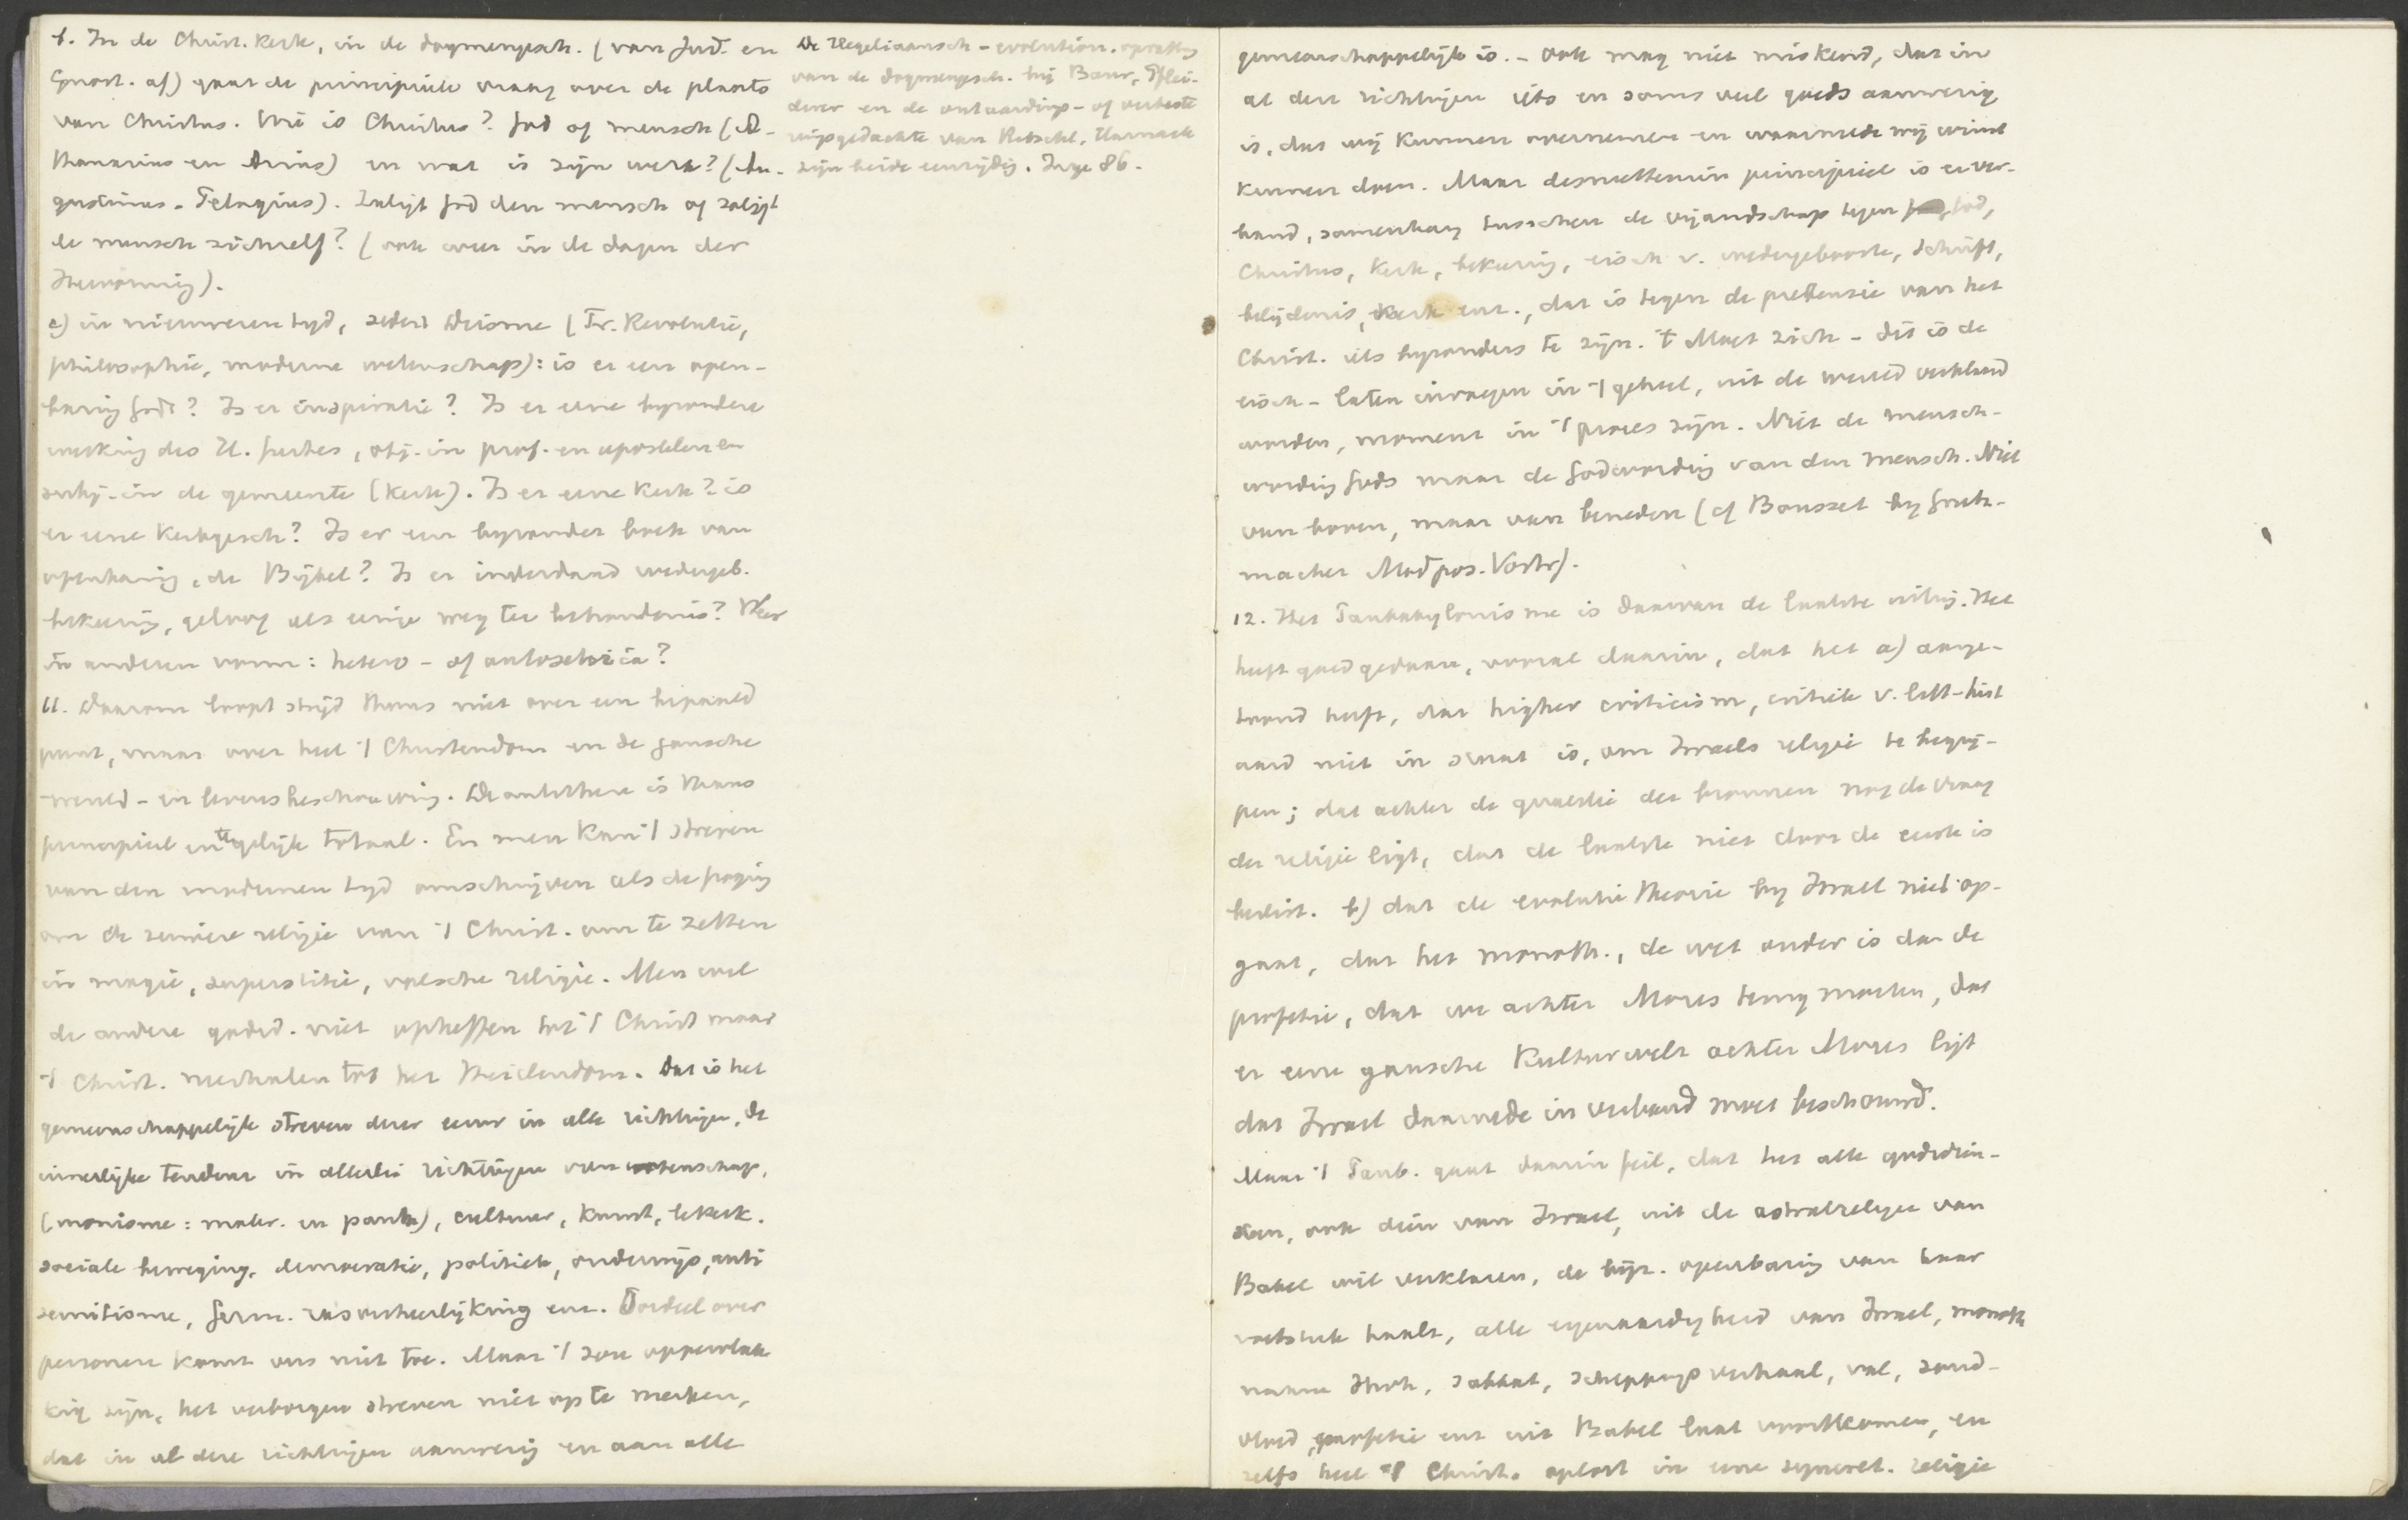 b. In de Christ. Kerk, in de dogmengesch. (van Jud. en
Gnost. af) gaat de principiele vraag over de plaats
van Christus. Wie is Christus? God of mensch (A-
thanasius en Arius) en wat is zijn werk? (Au-
gustinus - Pelagius). Zaligt God den mensch of zaligt
de mensch zichzelf? (ook weer in de dagen der
Hervorming).
c) in nieuweren tijd, sedert Deisme (Fr. Revolutie,
philosophie, moderne wetenschap): is er een open-
baring Gods? Is er inspiratie? Is er eene byzondere
werking des H. Geestes, obj. in prof. en apostelen en
subj. in de gemeente (Kerk). Is er eene Kerk? is
er eene Kerkgesch? Is er een byzonder boek van
openbaring, de Bijbel? Is er inderdaad wedergeb.
bekeering, geloof als eenige weg ter behoudenis? Weer
in anderen vorm: hetero- of autosoteria?
11. Daarom loopt strijd thans niet over een bepaald
punt, maar over heel 't Christendom en de gansche
wereld- en levensbeschouwing. De antithese is thans
principieel en tegelijk totaal. En men kan 't streven
van den modernen tijd omschrijven als de poging
om de zuivere religie van 't Christ. om te zetten
in magie, superstitie, valsche religie. Men wil
de andere godsd. niet opheffen tot 't Christ maar
't Christ. neerhalen tot het Heidendom. Dat is het
gemeenschappelijk streven dezer eeuw in alle richtingen, de
innerlijke tendenz in allerlei richtingen van wetenschap,
(monisme: mater. en panth), cultuur, kunst, letterk.
sociale beweging, democratie, politiek, onderwijs, anti
semitisme, Germ. rasverheerlijking enz. Oordeel over
personen komt ons niet toe. Maar 't zou oppervlak
kig zijn, het verborgen streven niet op te merken,
dat in al deze richtingen aanwezig en aan alle
De Hegeliaansch-evolution. opvatting
van de dogmengesch. bij Baur, Pflei-
derer en de ontaardings- of verbaste
ringsgedachte van Ritschl, Harnack
zijn beide eenzijdig. Inge 86.
gemeenschappelijk is. - Ook mag niet miskend, dat in
al deze richtingen iets en soms veel goeds aanwezig
is, dat wij kunnen overnemen en waarmede wij winst
kunnen doen. Maar desniettemin principieel is er ver-
band, samenhang tusschen de vijandschap tegen God,
Christus, Kerk, bekeering, eisch v. wedergeboorte, Schrift,
belijdenis, Kerk enz., dat is tegen de pretensie van het
Christ. iets byzonders te zijn. 't Moet zich - dit is de
eisch - laten invoegen in 't geheel, uit de wereld verklaard
worden, moment in 't proces zijn. Niet de mensch-
wording Gods maar de Godwording van den mensch. Niet
van boven, maar van beneden (cf Bousset by Grütz-
macher Mod pos. Vortr).
12. Het Panbabylonisme is daarvan de laatste uiting. Het
heeft goed gedaan, vooral daarin, dat het a) aange-
toond heeft, dat higher criticism, critiek v. litt-hist
aard niet in staat is, om Israels religie te begrij-
pen; dat achter de quaestie der bronnen nog de vraag
der religie ligt, dat de laatste niet door de eerste is
beslist. b) dat de evolutietheorie by Israel niet op-
gaat, dat het monoth., de wet ouder is dan de
profetie, dat we achter Mozes terug moeten, dat
er eene gansche Kulturwelt achter Mozes ligt
dat Israel daarmede in verband moet beschouwd.
Maar 't Panb. gaat daarin feil, dat het alle godsdien-
sten, ook dien van Israel, uit de astralreligie van
Babel wil verklaren, de bijz. openbaring van haar
voetstuk haalt, alle eigenaardigheid van Israel, monoth
naam Jhvh, sabbat, scheppingsverhaal, val, zond-
vloed, profetie enz uit Babel laat voortkomen, en
zelfs heel 't Christ. oplost in eene syncret. religie